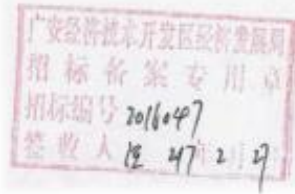 广安经济技术开发区经济发展局
招标备案专用章
招标编号 2016047
签收人 年 2 月 27